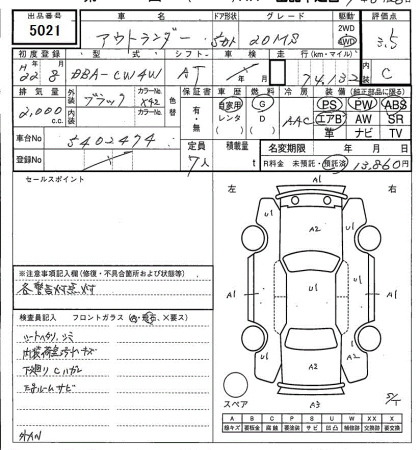 出品番号 車名 ドア形状 グレード 駆動 評価点
5021 アウトランダー 5ドア 20MS 2WD 4WD 3.5
初度登録 型式 シフト 車検 走行(km・マイル) 内装
H22年8月 DBA-CW4W AT 年 月 74,132 C
排気量 外装 ブラック カラーNo. X42 色替 保証書 車歴 燃料 冷房 装備(純正部品に限る)
2,000 c.c. 内装 カラーNo. 有・無 自家用 G AAC PS PW ABS
レンタ D エアB AW SR
車台No 5402474 革 ナビ TV
登録No 定員 7人 積載量 名変期限 年 月 日
( ) t R料金 未預託・預託済 13,860円
セールスポイント
左 A1 右
U1 A2 U1
A1 A1
U1 A2
A2
スペア A3 S/T
※注意事項記入欄(修復・不具合箇所および状態等)
各警告灯点灯
検査員記入 フロントガラス(A・飛石、×要ス)
シートヘタリ、シミ
内装荷室汚れキズ
下廻りCハガレ
エンジンルームサビ
A B C P S U W X XX X
線キズ 要板金 腐蝕 要塗装 サビ 凹凸 補修跡 要交換 交換済